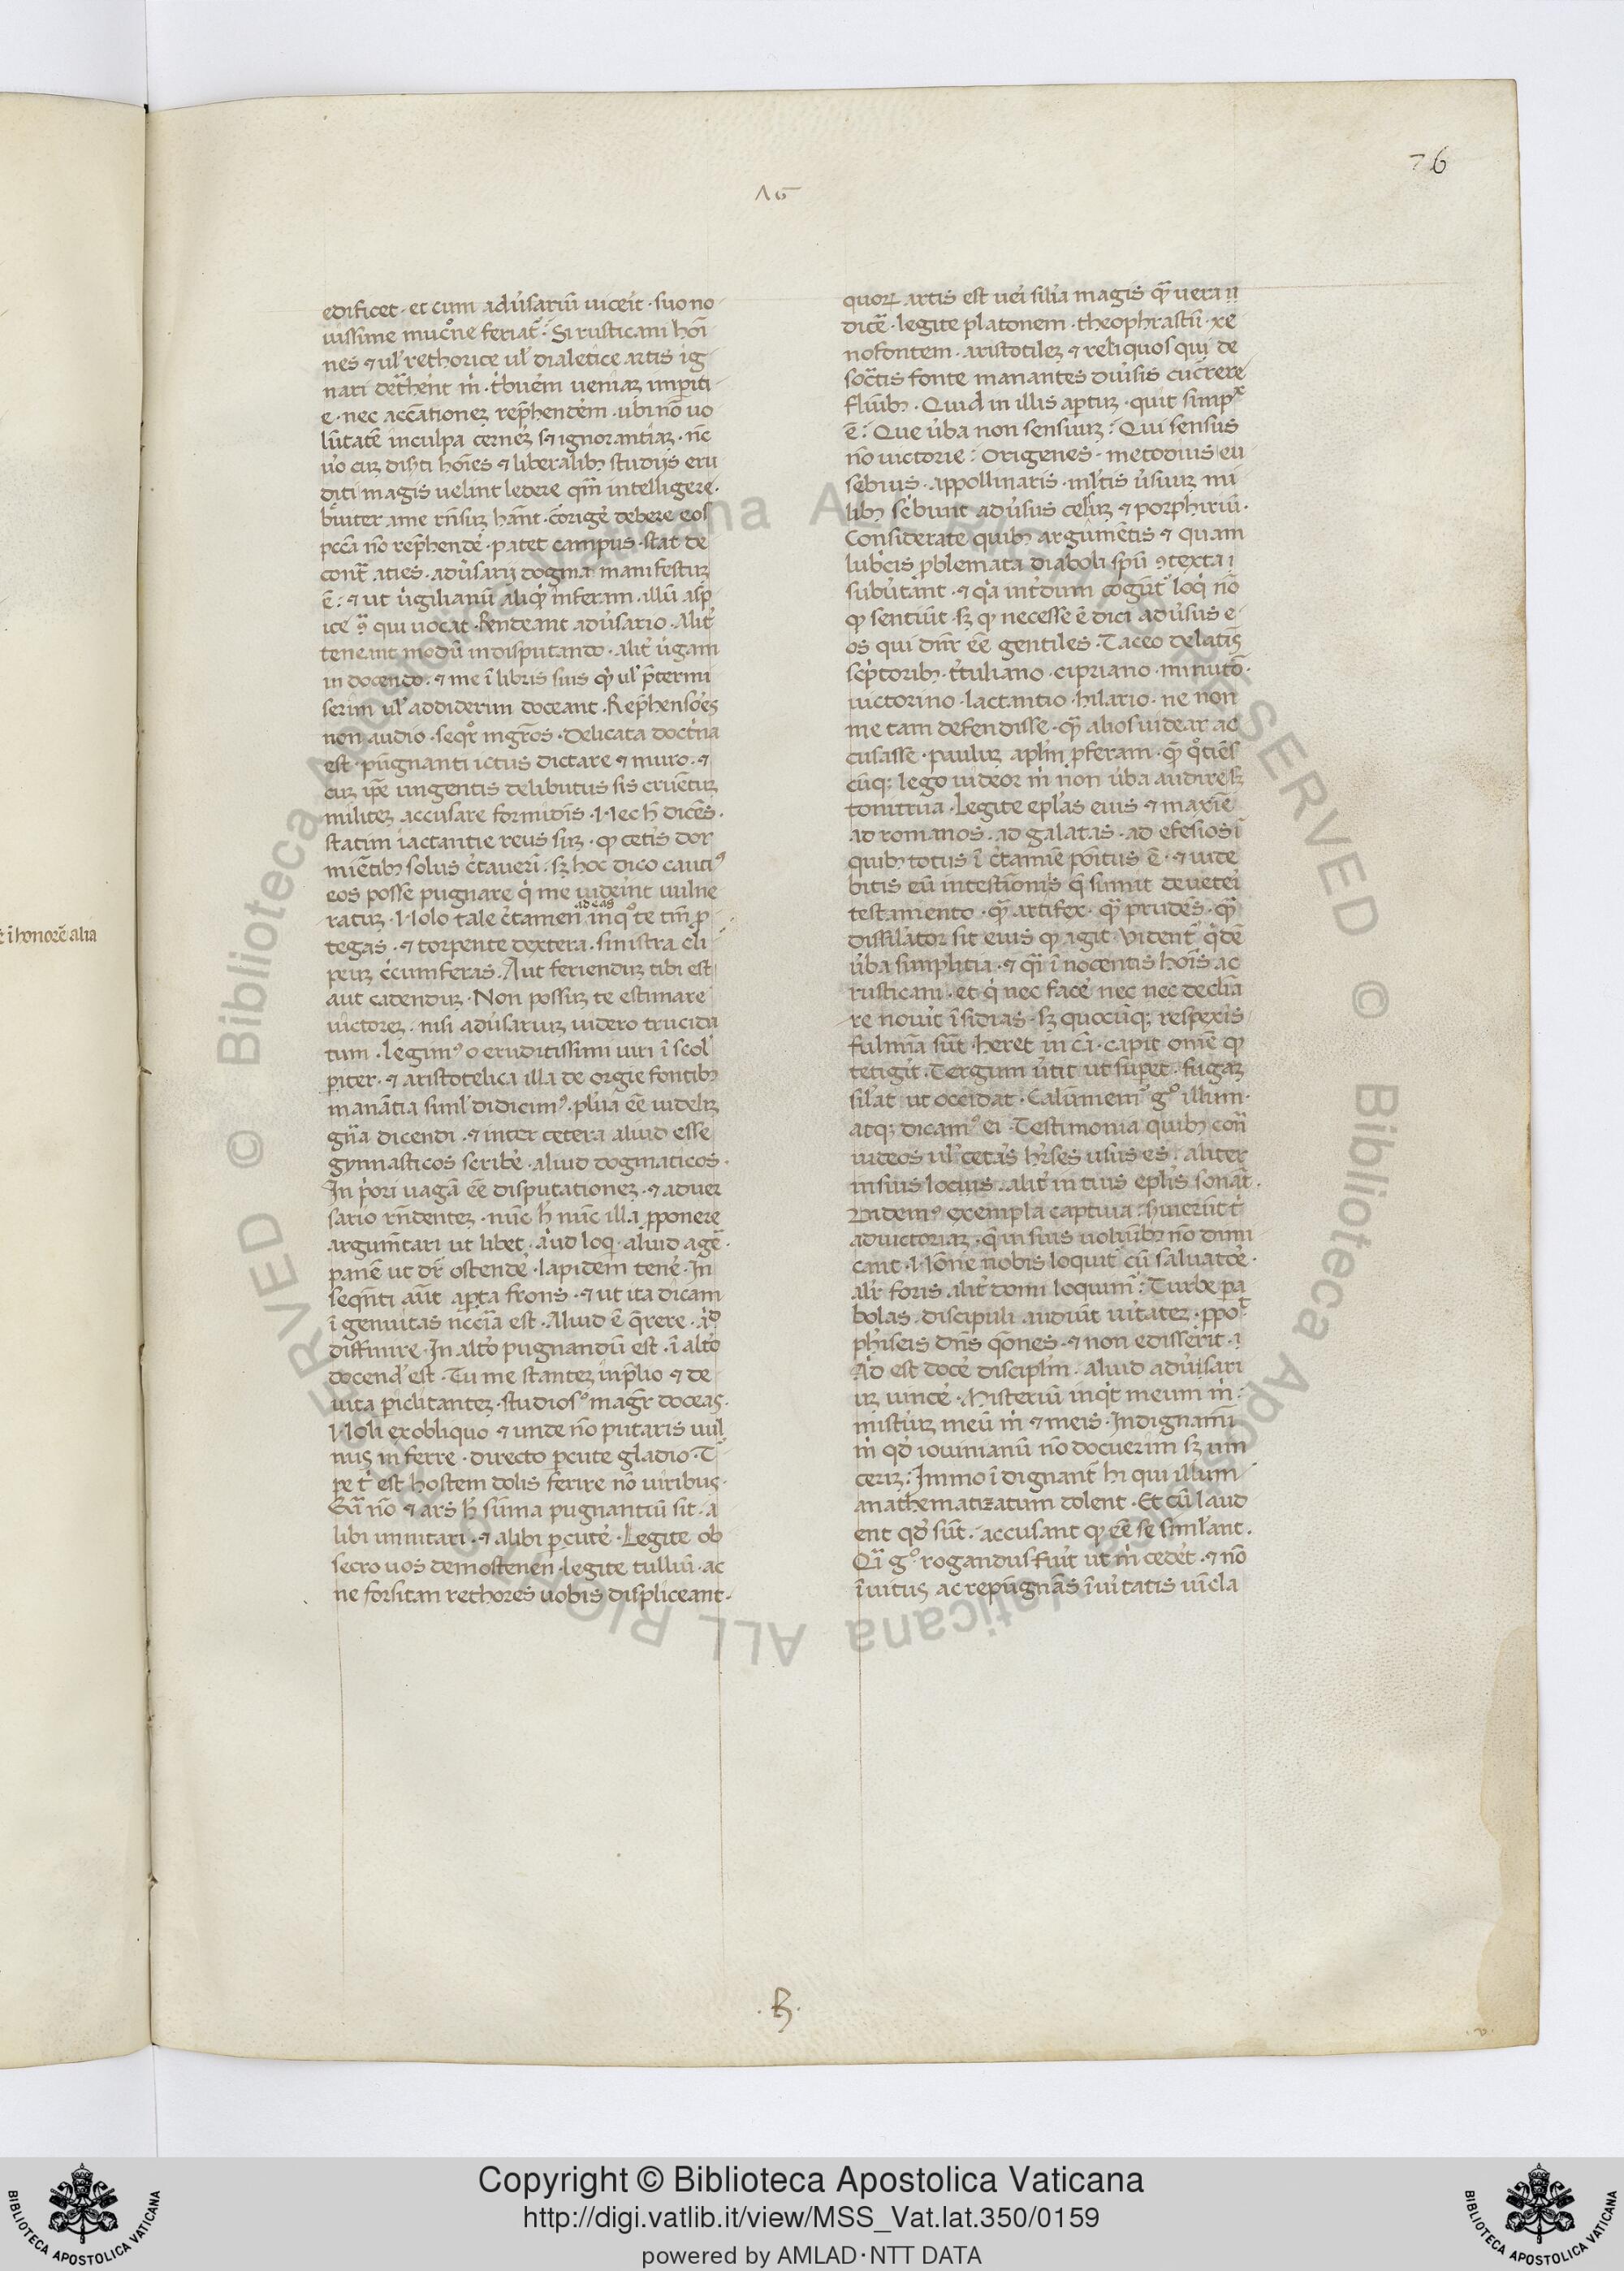 76
15
edificet · et cum adu̇sariū uiceı̇t · suo no
uissime muc̊ne feriat᷑ : Si rusticani hoı̄
nes ⁊ ul᷑ rethorice ul᷑ dialetice artis ig
nari det̾hent m̍ · t̍buėm ueniaꝫ imperiti
e · nec acc̄ationeꝫ rep̄hendėm · ubi nō uo
lūtatē inculpa cerneꝫ sꝫ ignorantiaꝫ · nc̄
u̍o cuꝫ diserti hoīes ⁊ liberalibꝫ studijs eru
diti magis uelint ledere qm̄ intelligere ·
bꝛ̍uiter a me rn̄suꝫ hānt · cōrigė debere eos
pccā nō rep̄hendė · patet campus · stat de
contͣ aties · adu̇sarij dogma manifestuꝫ
ē : ⁊ ut u̍gilianū aliq̍ inferam · illū asp
ice ꝯ̄ qui uocat · Rn̄deant adu̇sario · alit᷑
teneant modū in disputando · alit᷑ u̍gam
in docendo · ⁊ me ī libris suis q̍ ul᷑ p̄termi
serim ul᷑ addiderim doceant · Rep̄hensōes
non audio · seqr̊ mgr̄os · Delicata doct̍na
est · pūgnanti ictus dictare ⁊ muro · ⁊
cuꝫ ip̄e ungentis delibutus sis cruētuꝫ
militeꝫ accusare formidīs · Nec h̄ dicēs ·
statim iactantie reus siꝫ · ꝙ cetı̍s dor
miētibꝫ solus c̍tauerī · sꝫ hoc dico cautiꝰ
eos posse pugnare q̍ me uideı̍nt uulne
ratuꝫ · Nolo tale c̍tamen ad eas inq̊ te tm̄ ꝓ
tegas · ⁊ torpente dextera · sinistra cli
peuꝫ c̍cumferas · Aut feriendūꝫ tibi est
aut cadenduꝫ · Non possuꝫ te estimare
uictoreꝫ · nisi adu̇sariuꝫ uidero trucida
tum · Legimꝰ o eruditissimi uiri ī scol᷑
piter · ⁊ aristotelica illa de orgie fontibꝫ
manātia siml᷑ didicimꝰ · plu̍a eē uideliꝫ
gn̄a dicendi · ⁊ inter cetera aliud esse
gynnasticos scribė · aliud dogmaticos ·
In p̍ori uagā eē disputationeꝫ · ⁊ aduer
sario rn̄denteꝫ · nūc h̄ nūc illa ꝓponere
argum̄tari ut libet · a̍ud loq̍ · aliud agē ·
panē ut dr̄ ostendė · lapidem tenė · In
seqn̄ti aūt ap̄ta frons · ⁊ ut ita dicam
ī genuitas nccīa est · Aliud ē q̄rere · a̍d
diffinire · In alt̊o pugnandū est · ī alt̊o
docend᷑ est · Tu me stanteꝫ in p̄lio ⁊ de
uita periclitanteꝫ · studiosꝰ magr̄ doceas ·
Noli ex obliquo ⁊ unde nō putaris uul
nus in ferre · directo ꝑcute gladio · T̄
pe t̍ est hostem dolis ferire nō uiribus ·
Q̄ı̄ nō ⁊ ars h̄ sūma pugnantiū sit · a
libi minitari · ⁊ alibi ꝑcutė · Legite ob
secro uos demostenen · legite tulliū · ac
ne forsitan rethores uobis displiceant ·
quoꝝ artis est uei silı̍a magis qͣ uera ıı
dicē · legite platonem · theophrastū · xe
nofontem · aristotileꝫ ⁊ reliquos qui de
soc̄tis fonte manantes diu̍sis cuc̄rere
fliuibꝫ · Quid in illis aꝑtuꝫ · quit simpˣ
ē : Que u̍ba non sensuuꝫ : Qui sensus
nō uictorie : Origenes · metodius eu
sebius · appollinaris · ml̄tis u̇suuꝫ mi
libꝫ sc̍bunt adu̍sus celsuꝫ ⁊ porphiriū ·
Considerate quibꝫ argumētis ⁊ quam
lub̍cis ꝓblemata diaboli spū ꝯtexta ı
subu̍tant · ⁊ q̍a int̍dum cogūt᷑ loq̍ nō
ꝙ sentiūt · sꝫ ꝙ necesse ē dici adu̍sus e
os qui dnr̄ eē gentiles · Taceo de latiīs
sc̍ptoribꝫ · t̍tuliano · cipriano · minutō ·
uictorino · lactantio · hilario · ne non
me tam defendisse · qͣ alios uidear ac
cusasse · pauluꝫ aplm̄ ꝓferam · qͣ qͦtiēs
cūqꝫ lego uideor m̍ non u̍ba audire sꝫ
tonitrua · Legite epl̄as eius ⁊ maxīe
ad romanos · ad galatas · ad efesios ī
quibꝫ totus ī c̍tamīe pōitus ē · ⁊ uide
bitis eū in testīonı̍s q̄ sumit de ueteı̍
testamento · qͣ artifex · qͣ prudēs · qͣ
dissilator sit eius ꝙ agit · Vident᷑ q̍dē
u̍ba simplitia · ⁊ qͣı̄ ī nocentis hoīs ac
rusticani · et q̍ nec facė nec nec declīa
re nouit īsidias · sꝫ quocūqꝫ respexı̍s
fulmīa sūt · heret in cā · capit omē ꝙ
tetigit · Tergum u̍tit ut suꝑet · fugaꝫ
sil̄at ut occidat · Calumnem̄ gͦ illum ·
atqꝫ dicamꝰ ei · Testimonia quibꝫ con̄
iudeos ul᷑ cetas hr̄ses usus es · aliter
in suis locius · alit᷑ in tuis epl̄is sonāt ·
Videmꝰ exempla captiua : ẜuierūt t̍
ad uictoriaꝫ · q̄ in suis uoluībꝫ nō dimi
cant · Nōne nobis loquit᷑ cū saluatoē ·
alr̄ foris · alit᷑ domi loquim̄ : Turbe pa
bolas · discipuli audiūt uı̍tateꝫ · ꝓpoᵗ
phı̍seis dn̄s q̄ones · ⁊ non edisserit · ı
A̍d est docė discipl̄m · aliud adu̍sari
uꝫ uincė · Misteriū inq̍t meum m̍ :
mistı̍uꝫ meū m̍ ⁊ meis · Indignam̄ı
m̍ qd̍ iouinianū nō docuerim sꝫ uin
ceriꝫ : Immo ī dignant᷑ hi qui illum
anathematizatum dolent · Et cū laud
ent qd̍ sūt · accusant ꝙ eē se siml᷑ant ·
Qı̄ gͦ rogandus fuit ut m̍ cedėt · ⁊ nō
īuitus ac repūgnās īuı̍tatis uı̄cla
.B.
ē ī honorē alia
Copyright © Biblioteca Apostolica Vaticana
http://digi.vatlib.it/view/MSS_Vat.lat.350/0159
powered by AMLAD·NTT DATA
BIBLIOTECA APOSTOLICA VATICANA
BIBLIOTECA APOSTOLICA VATICANA
© Biblioteca Apostolica Vaticana ALL RIGHTS RESERVED © Biblioteca Apostolica Vaticana ALL RIGHTS RESERVED